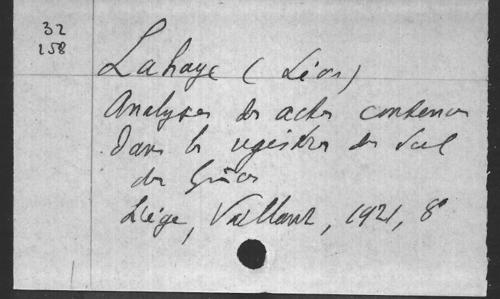 32
258
Lahaye (Léon)
Analyses des actes contenus
dans les registres du scel
des Grâces
Liége, Vaillant, 1921, 8°